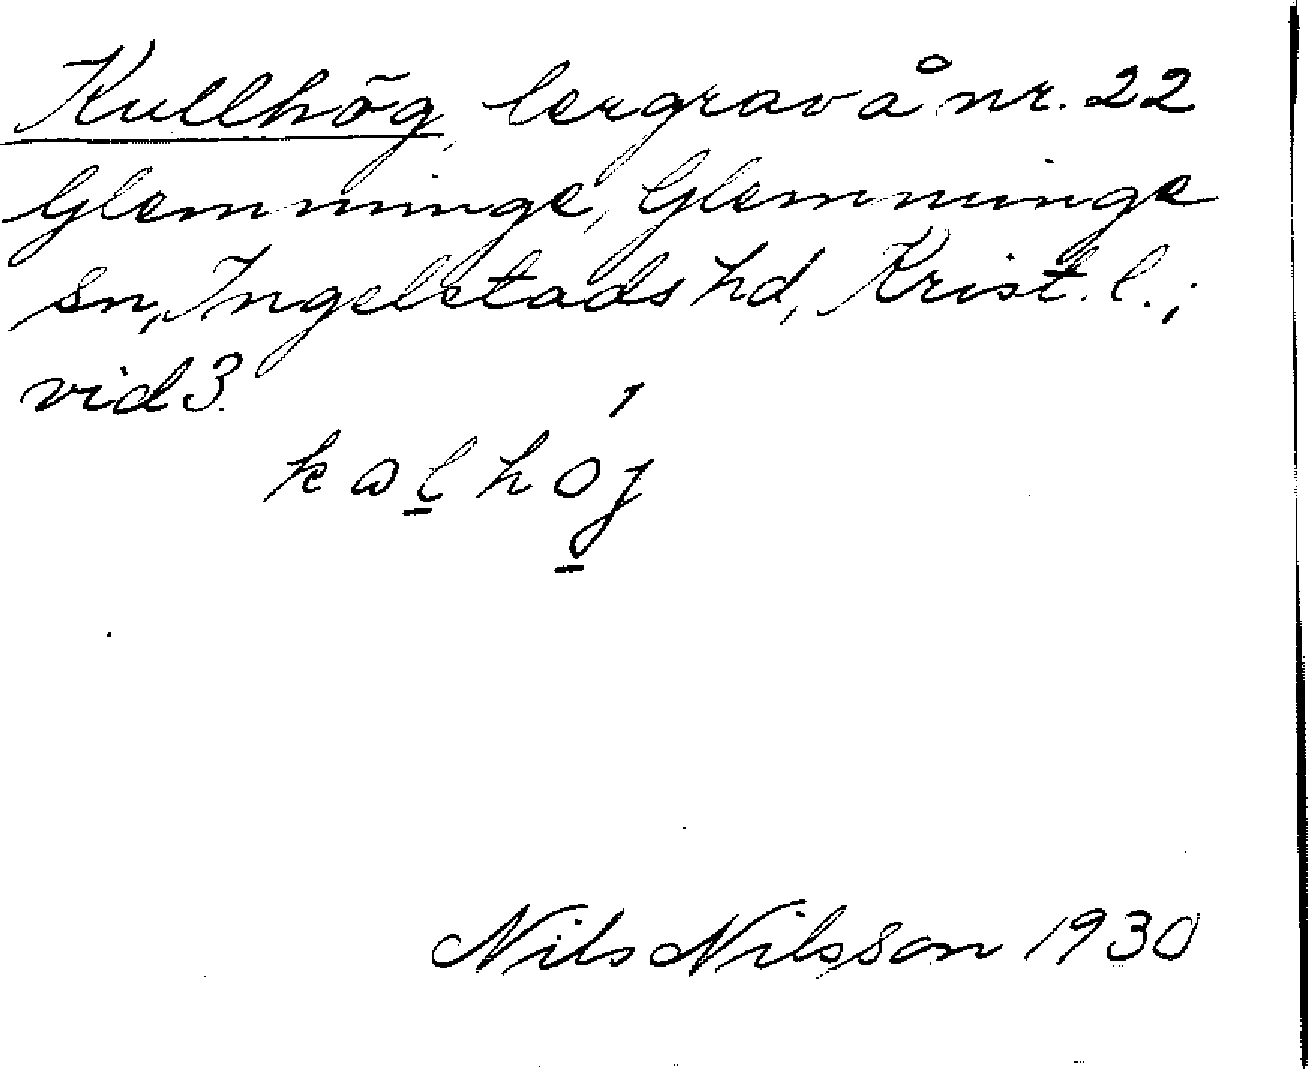 Kullhög, lergrav å nr. 22
Glemminge, Glemminge
sn, Ingelstads hd, Krist. l.;
vid 3.
kalhöj
Nils Nilsson 1930